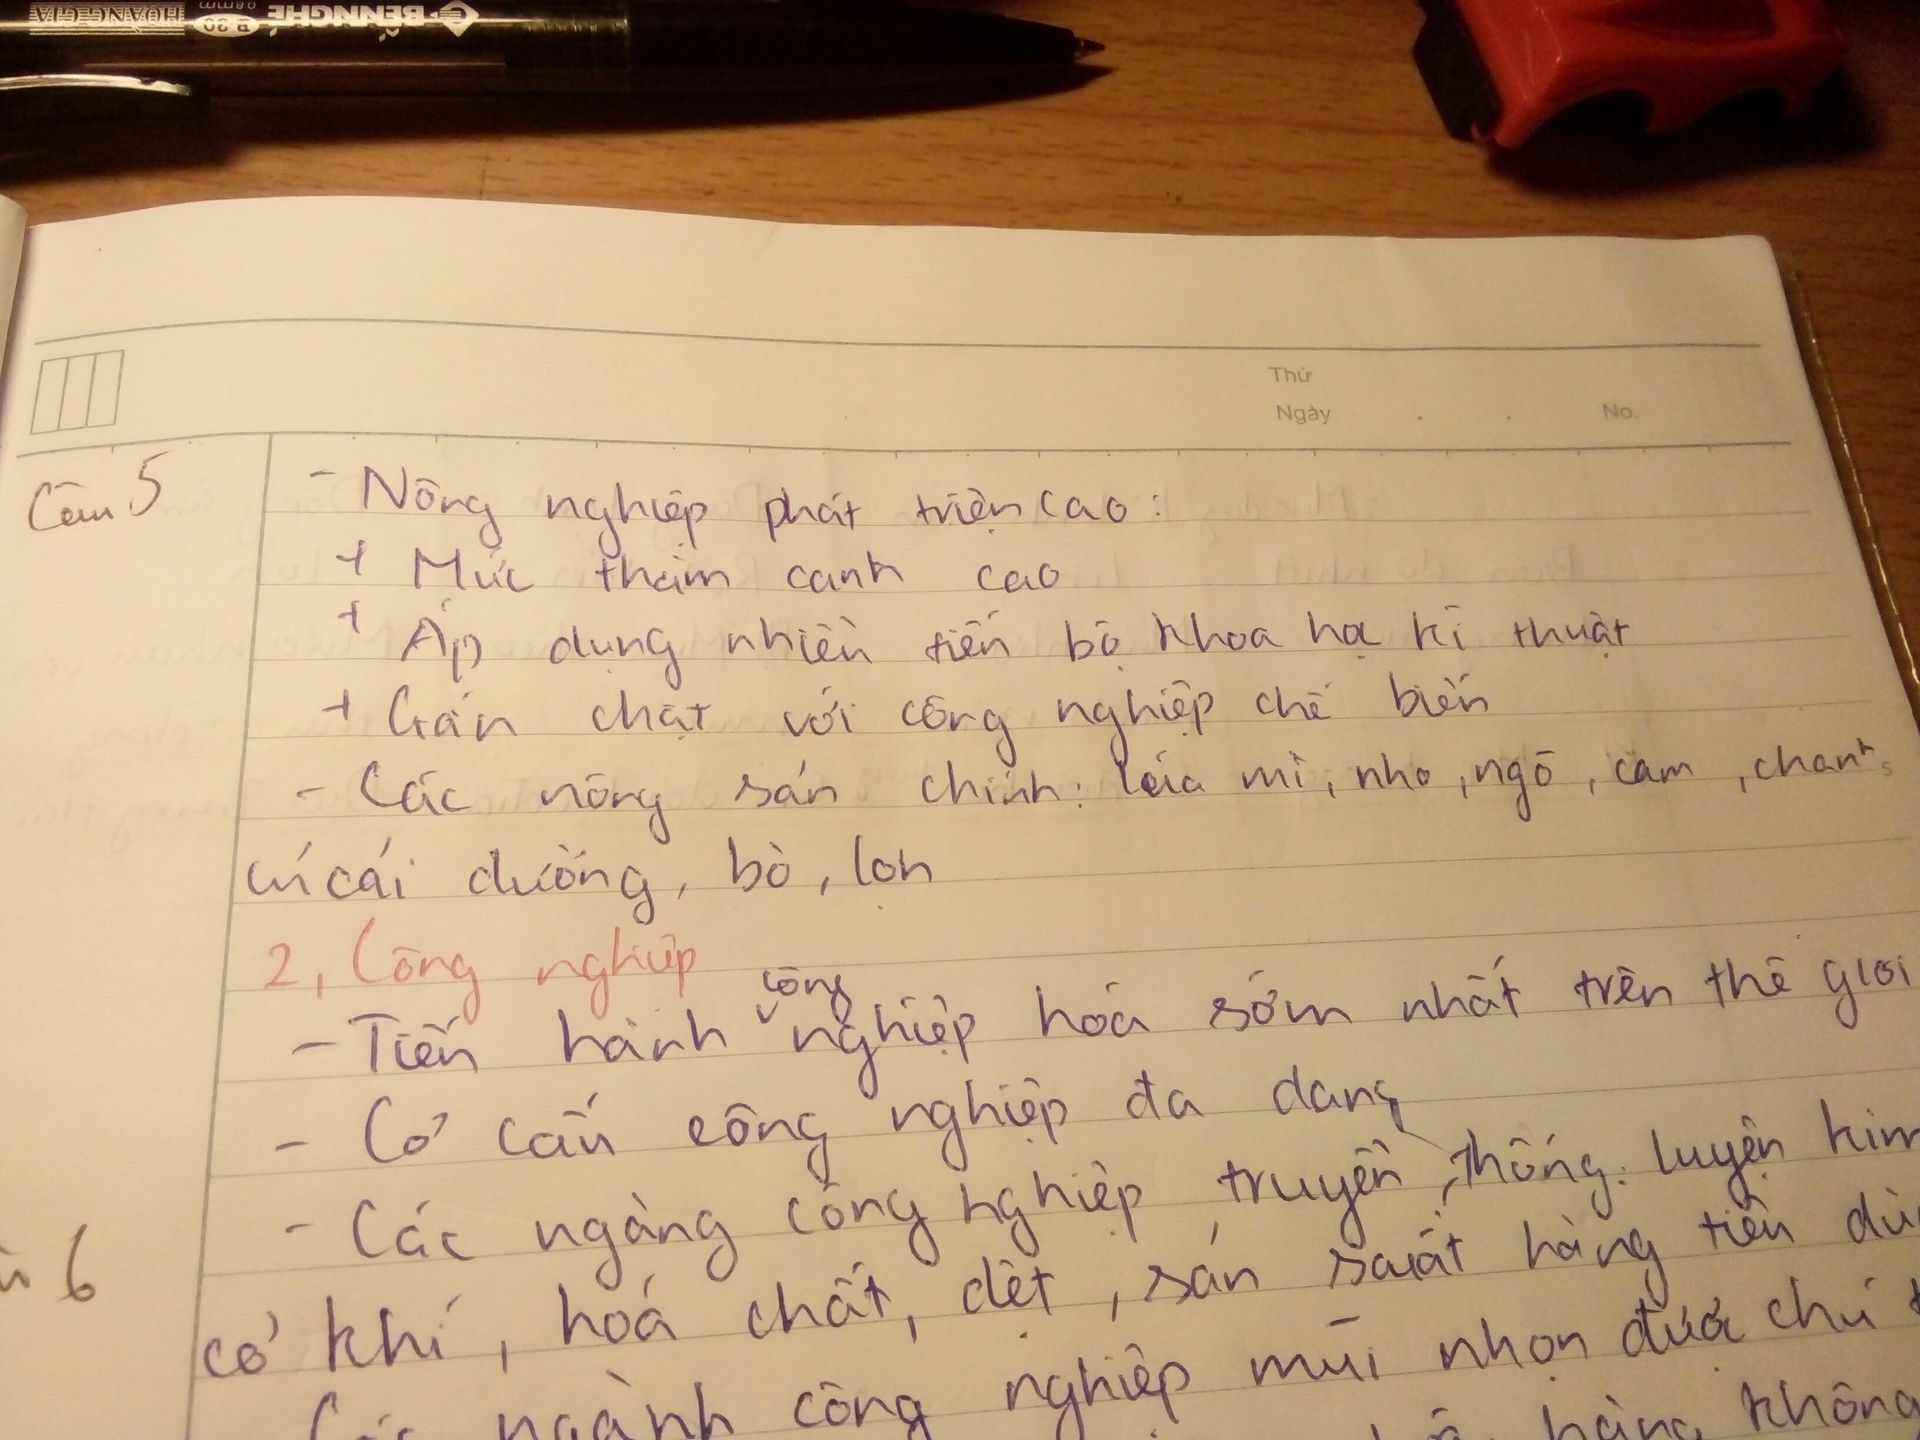 BẾN NGHÉ
HOÀNG GIA
Thứ
Ngày . . No.
Câu 5
- Nông nghiệp phát triển cao:
+ Mức thâm canh cao
+ Áp dụng nhiều tiến bộ khoa học kĩ thuật
+ Gắn chặt với công nghiệp chế biến
- Các nông sản chính: lúa mì, nho, ngô, cam, chanh,
củ cải đường, bò, lợn
2, Công nghiệp
- Tiến hành công nghiệp hoá sớm nhất trên thế giới
- Cơ cấu công nghiệp đa dạng
- Các ngàng công nghiệp truyền thống: luyện kim
cơ khí, hoá chất, dệt, sản suất hàng tiêu
công nghiệp mũi nhọn được chú
ngành hàng không
6